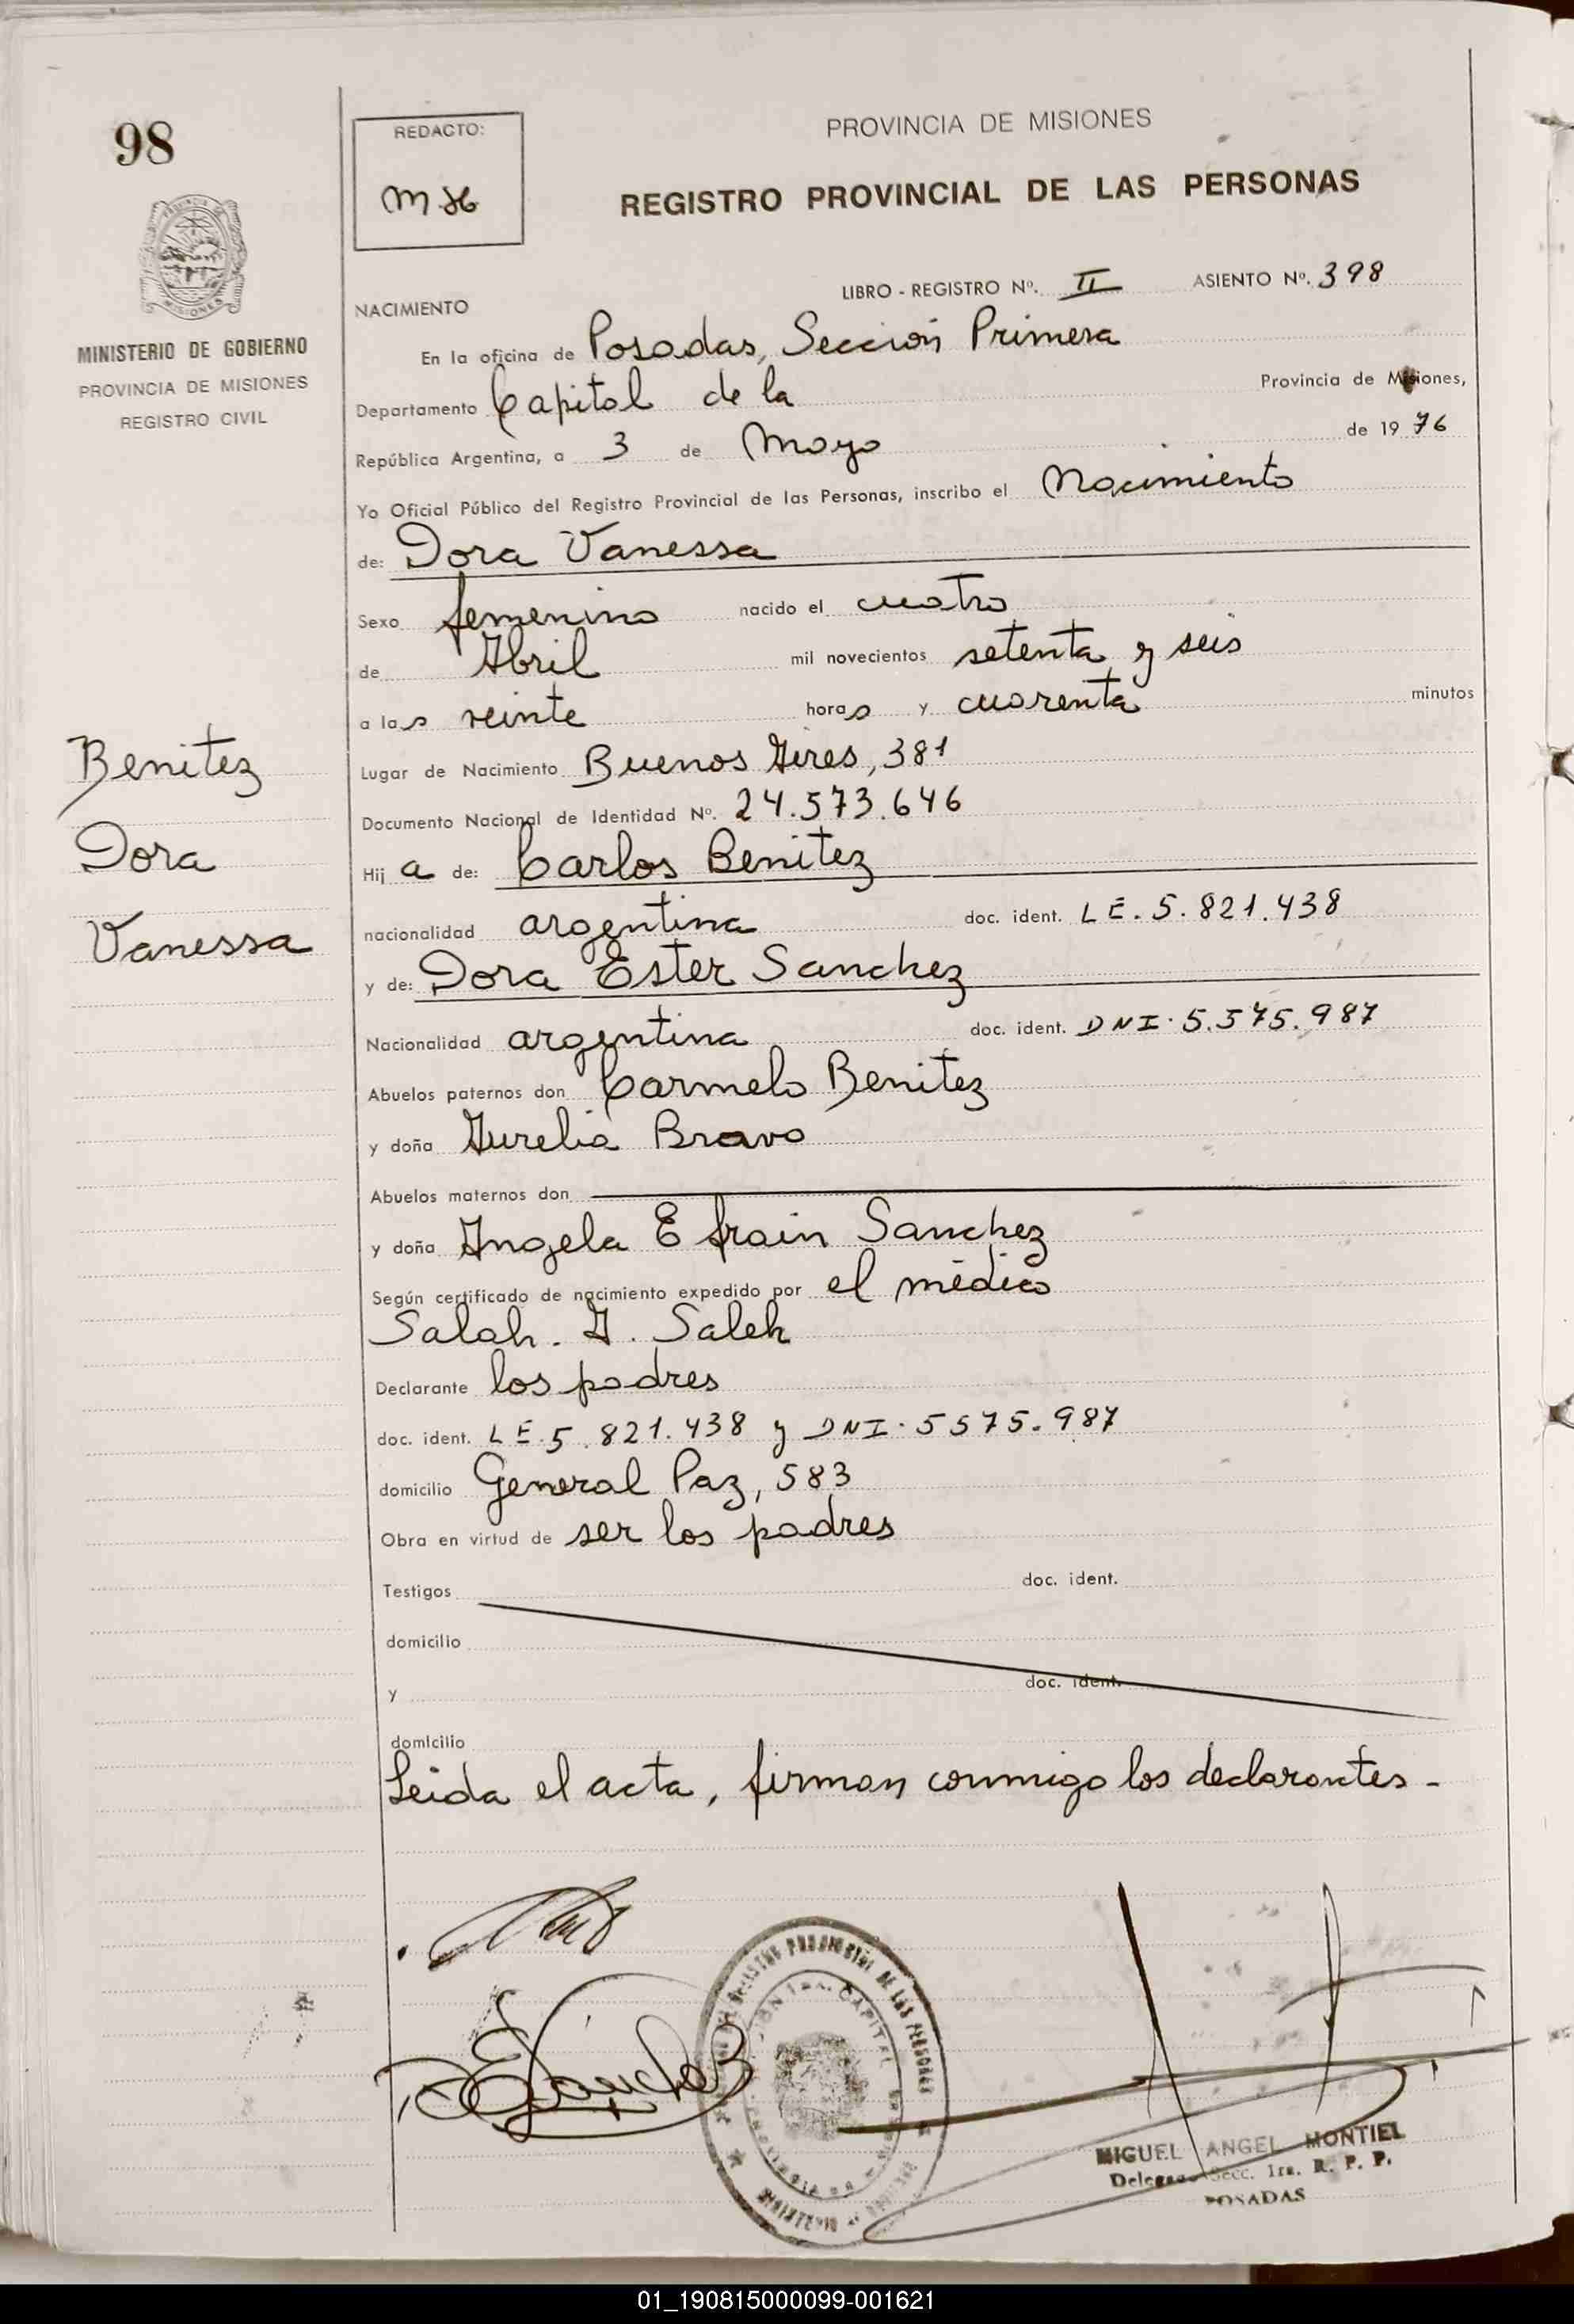 98
MINISTERIO DE GOBIERNO
PROVINCIA DE MISIONES
REGISTRO CIVIL
Benitez
Dora
Vanessa
REDACTO:
PROVINCIA DE MISIONES
REGISTRO PROVINCIAL DE LAS PERSONAS
LIBRO - REGISTRO Nº. II ASIENTO Nº. 398
NACIMIENTO
En la oficina de Posadas, Sección Primera
Departamento Capital de la Provincia de Misiones,
República Argentina, a 3 de Mayo de 1976
Yo Oficial Público del Registro Provincial de las Personas, inscribo el Nacimiento
de: Dora Vanessa
Sexo femenino nacido el cuatro
de Abril mil novecientos setenta y seis
a las veinte horas y cuarenta minutos
Lugar de Nacimiento Buenos Aires, 381
Documento Nacional de Identidad Nº. 24.573.646
Hija de: Carlos Benitez
nacionalidad argentina doc. ident. LE. 5.821.438
y de: Dora Ester Sanchez
Nacionalidad argentina doc. ident. DNI. 5.575.987
Abuelos paternos don Carmelo Benitez
y doña Aurelia Bravo
Abuelos maternos don
y doña Angela Efrain Sanchez
Según certificado de nacimiento expedido por el médico
Salah. A. Saleh
Declarante los padres
doc. ident. LE. 5.821.438 y DNI. 5575.987
domicilio General Paz, 583
Obra en virtud de ser los padres
Testigos doc. ident.
domicilio
y doc. ident.
domicilio
Leida el acta, firman conmigo los declarantes -
MIGUEL ANGEL MONTIEL
Delegado Secc. 1ra. R. P. P.
POSADAS
01_190815000099-001621